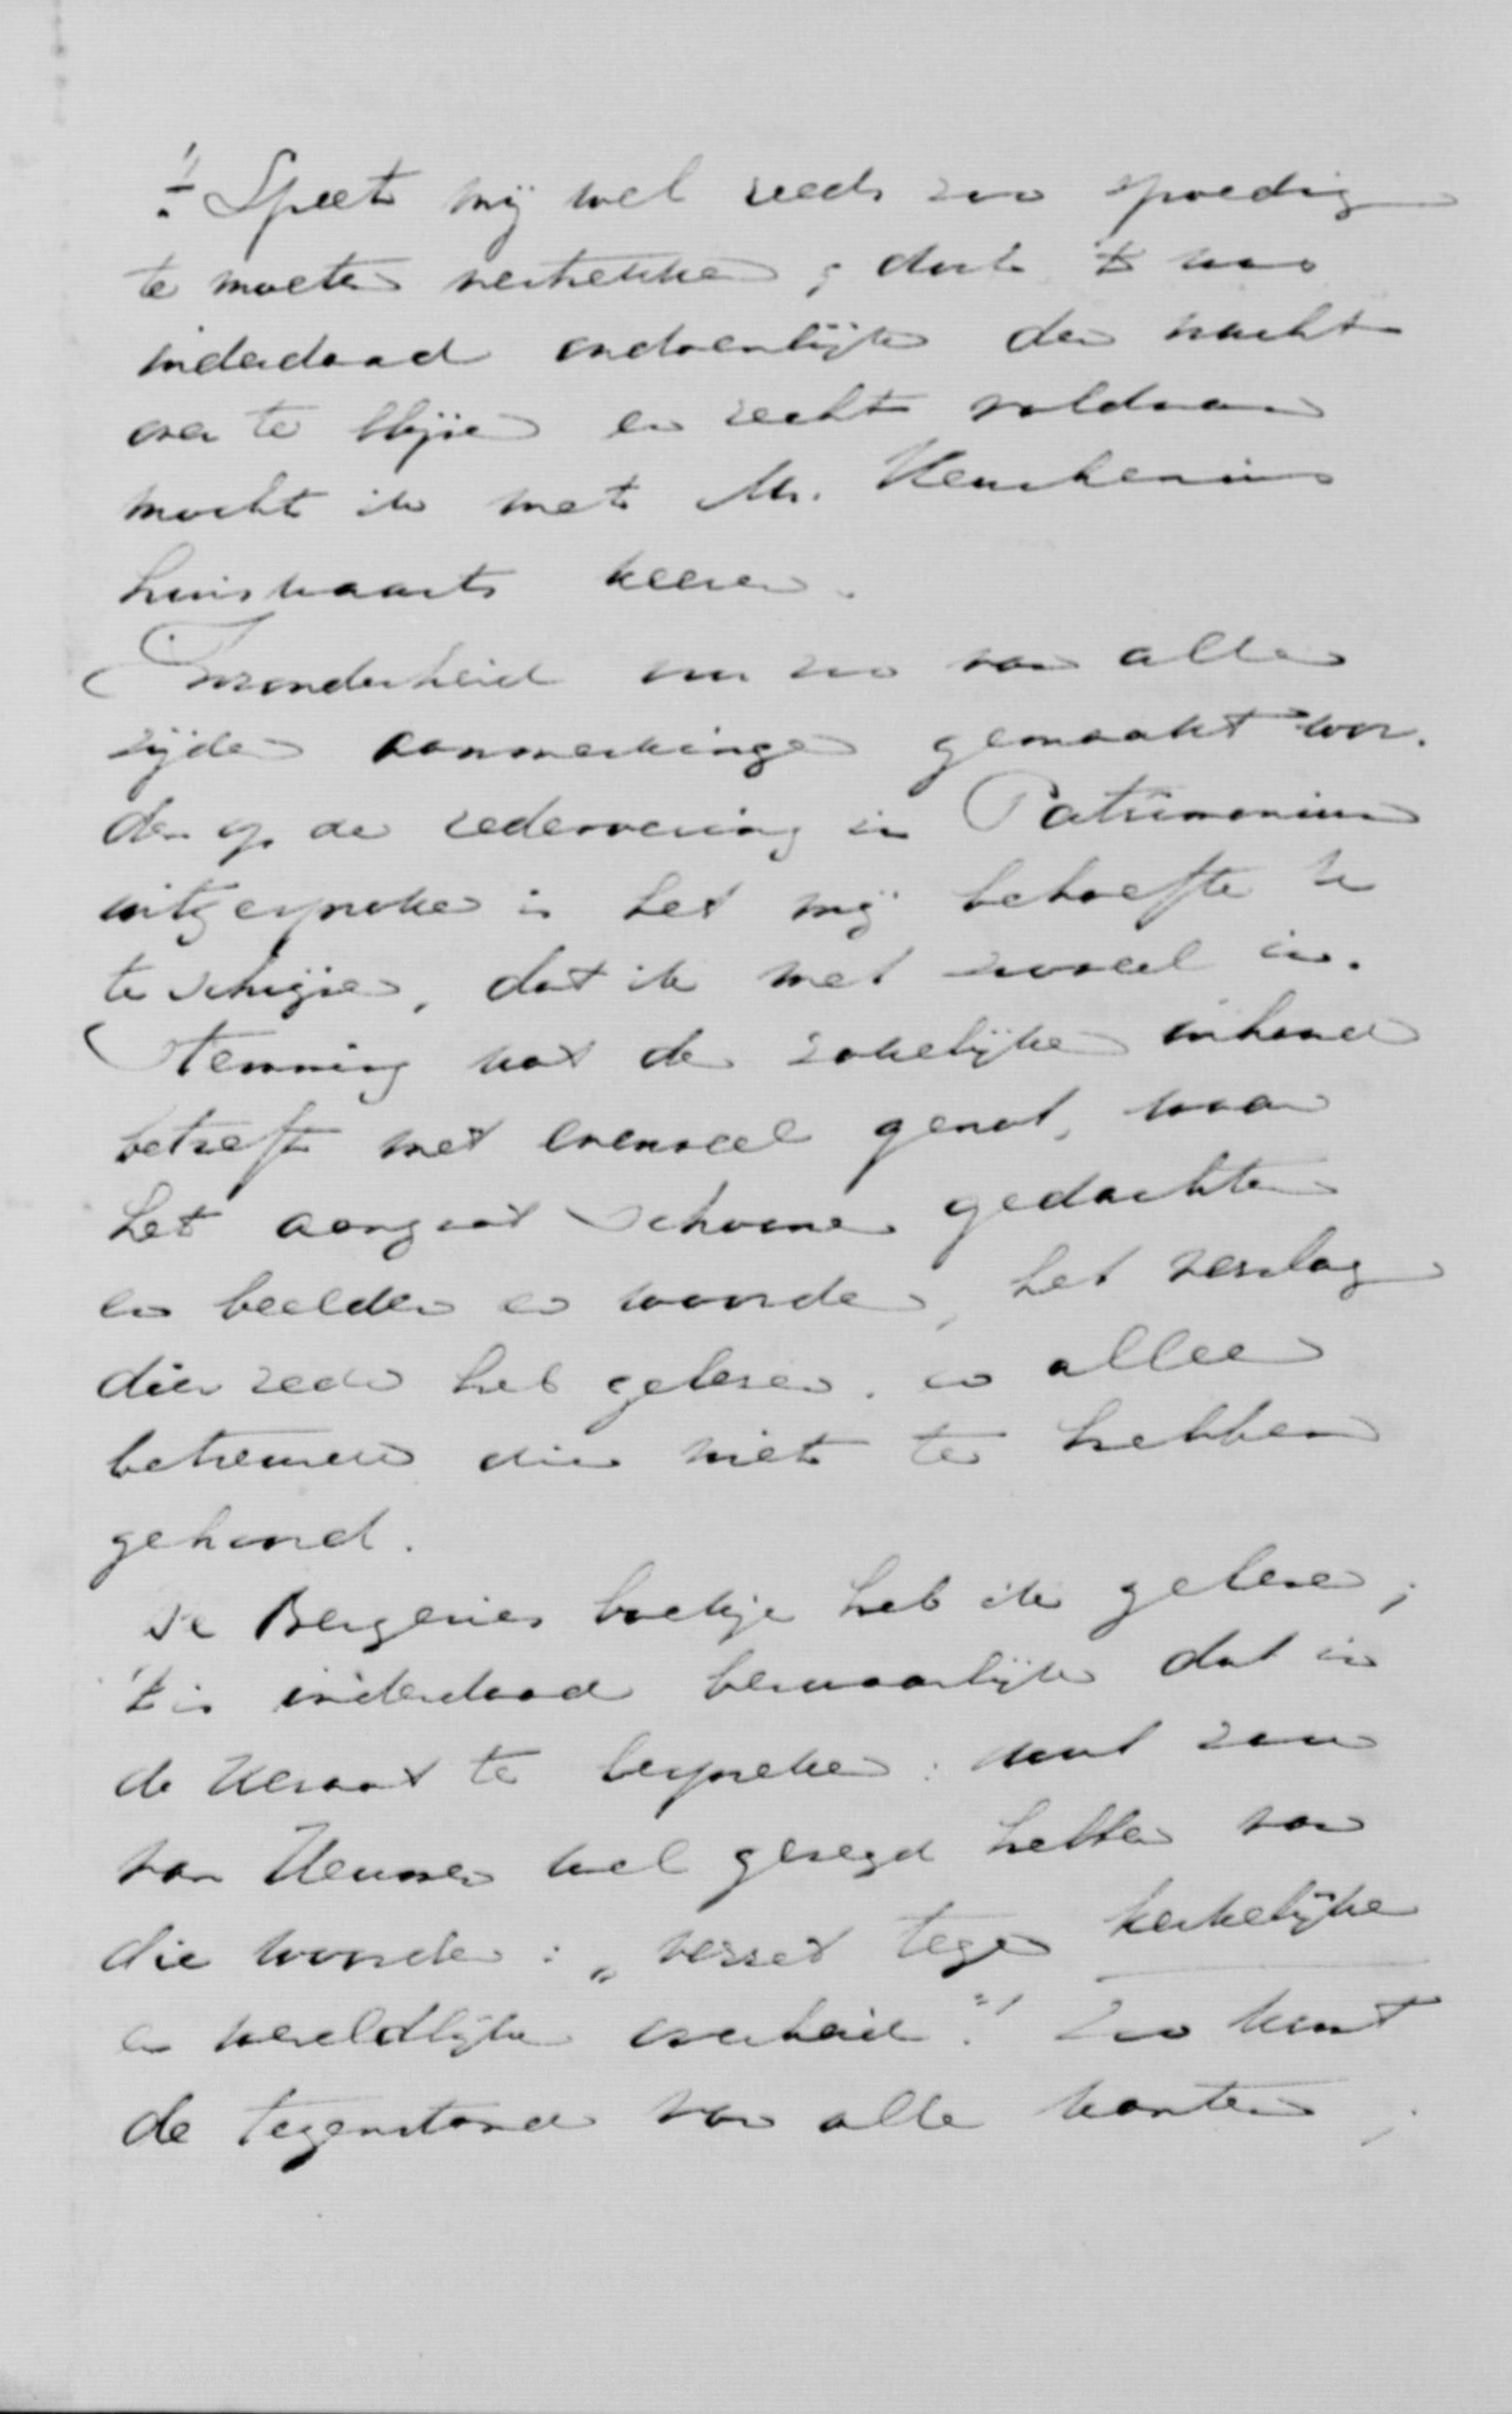 't Speet mij wel reeds zoo spoedig
te moeten vertrekken; doch 't was
inderdaad ondoenlijk den nacht
over te blijven en recht voldaan
mocht ik met Mr. Keuchenius
huiswaarts keeren.
Inzonderheid nu zoo van alle
zijden aanmerkingen gemaakt wor-
den op de redevoering in Patrimonium
uitgesproken is het mij behoefte U
te schrijven, dat ik met zooveel in-
stemming wat de zakelijken inhoud
betreft met evenveel genot, waar
het aangaat schoone gedachten
en beelden en woorden, het verslag
dier rede heb gelezen. en alleen
betreurde die niet te hebben
gehoord.
De Bergeries boekje heb ik gelezen;
't is inderdaad bezwaarlijk dat in
de Heraut te bespreken: wat zou
van Heussen wel gezegd hebben van
die woorden: "verzet tegen kerkelijke
en wereldlijke overheid"! Zoo komt
de tegenstand van alle kanten,